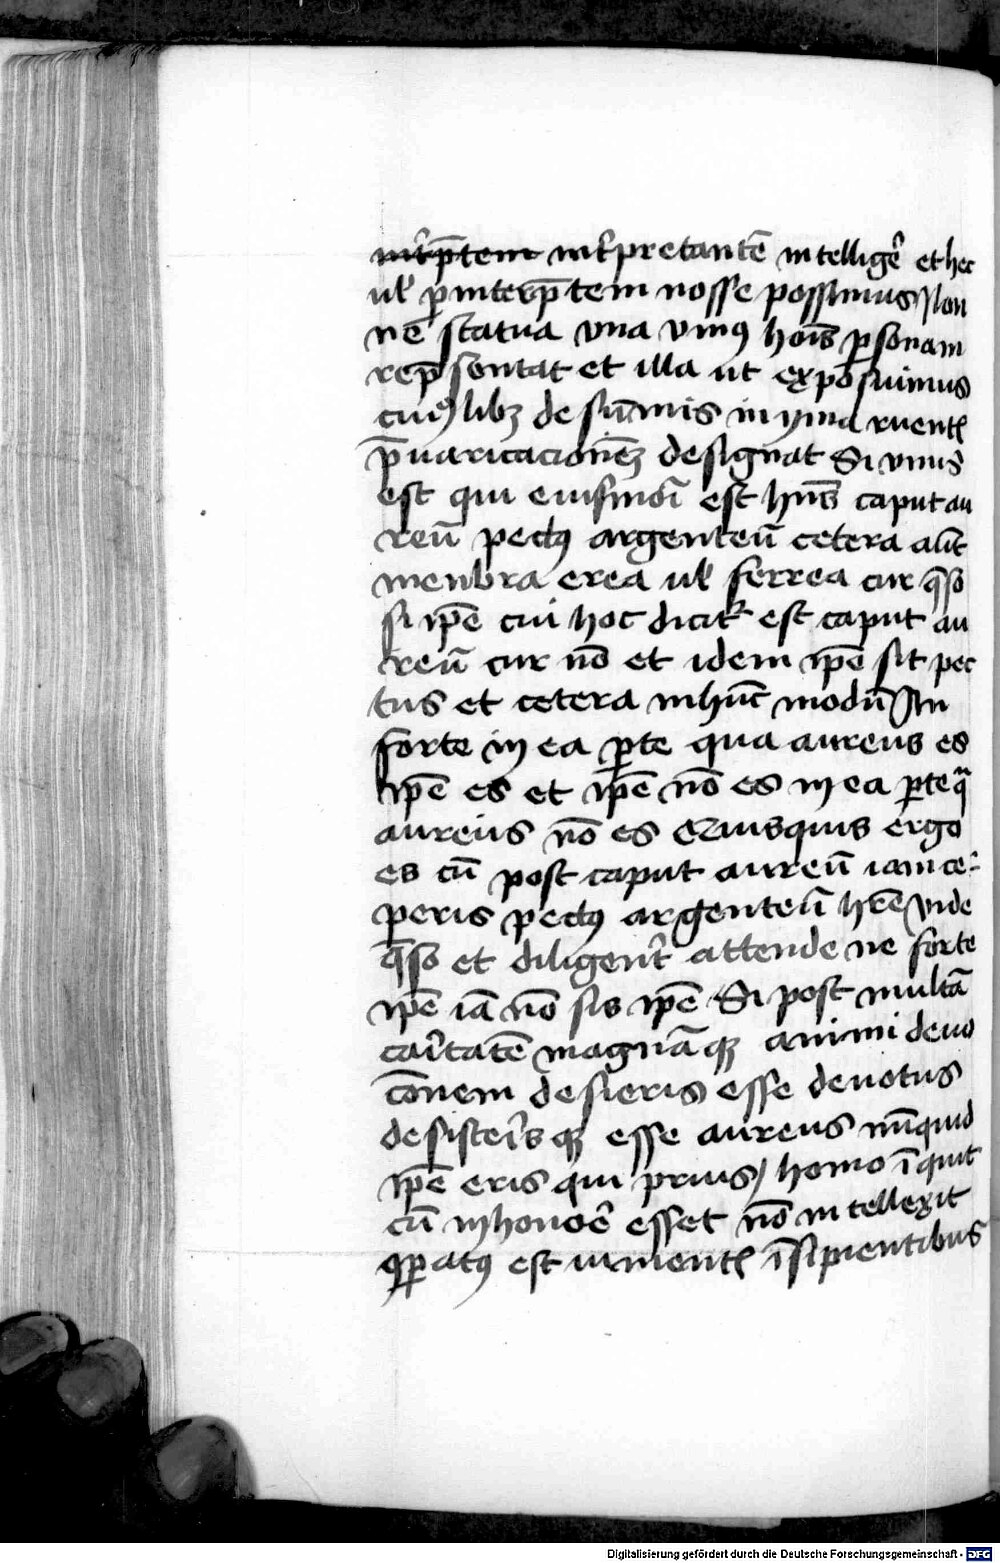 int̄rp̄tem int̄rpretantē intelligē et hec
ul̄ p̄ interp̄tem nosse possimus Non
nē statua una unius hoīs p̄sonam
rep̄sentat et illa ut exposuimus
cuiuslibꝫ de sūmis in yma ruentꝭ
p̄uaricacionēꝫ designat Si unus
est qui eiusmōi est hn̄s caput au
reū pectꝰ argenteū cetera aūt
menbra erea ul̄ ferrea cur q̄so
si ip̄e cui hoc dicit᷑ est caput au
reū cur nō et idem ip̄e sit pec
tus et cetera in hūc modū An
forte in ea p̄te qua aureus es
ip̄e es et ip̄e nō es in ea p̄te qᷓ
aureus nō es Quisquis ergo
es cū post caput aureū iam ce-
peris pectꝰ argenteū hr̄e vide
q̄so et diligent̄ attende ne forte
ip̄e iā nō sis ip̄e Si post multā
car̄itatē magnāqꝫ animi deuo
cōnem desieris esse deuotus
desisterisqꝫ esse aureus nūquid
ip̄e eris qui prius / homo īquit
cū in honoē esset nō intellexit
ꝯparatꝰ est iumentꝭ īsipientibus
Digitalisierung gefördert durch die Deutsche Forschungsgemeinschaft - DFG